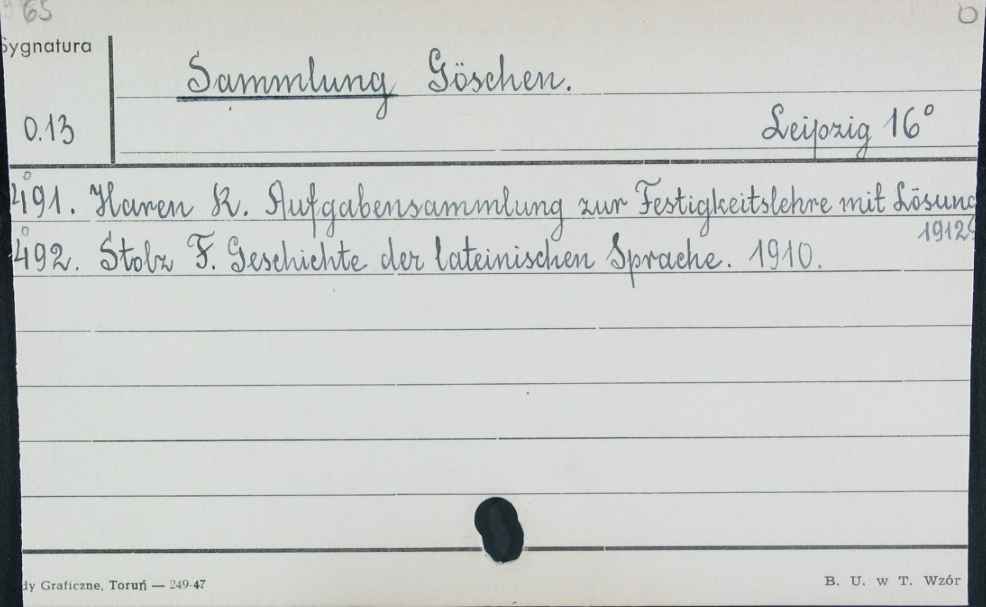 65
Sygnatura
Sammlung Göschen.
0.13
Leipzig 16°
491. Haren R. Aufgabensammlung zur Festigkeitslehre mit Lösung
1912
492. Stolz F. Geschichte der lateinischen Sprache. 1910.
dy Graficzne, Toruń — 249-47
B. U. w T. Wzór